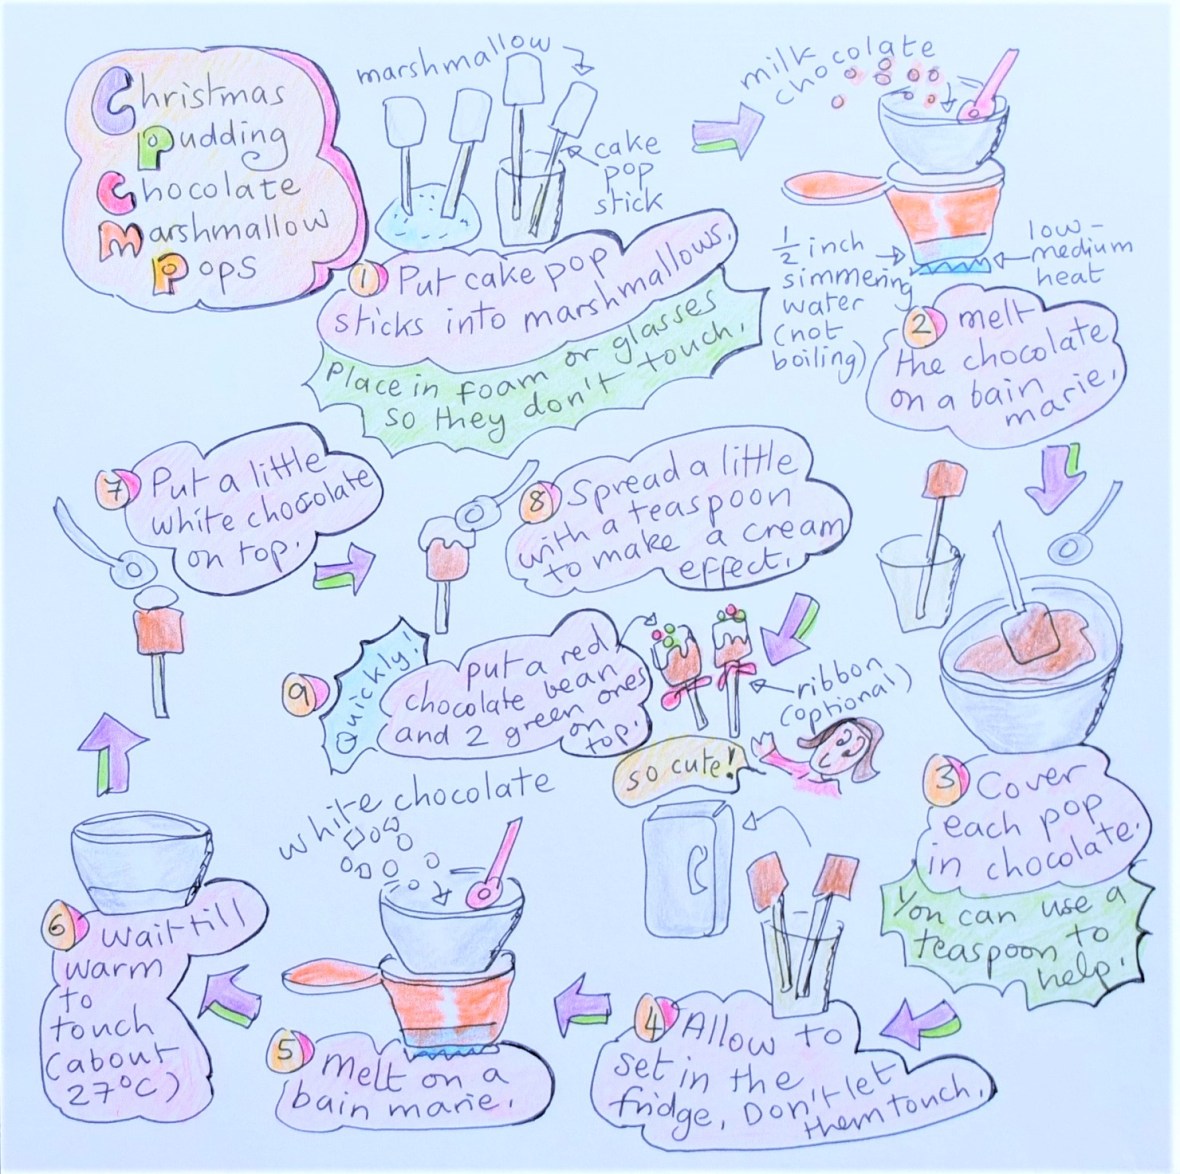 Christmas
Pudding
Chocolate
Marshmallow
Pops
marshmallow
cake
pop
stick
1 Put cake pop
sticks into marshmallows.
Place in foam or glasses
so they don't touch.
milk chocolate
1/2 inch
simmering
water
(not
boiling)
low-
medium
heat
2 melt
the chocolate
on a bain
marie.
3 Cover
each pop
in chocolate.
You can use a
teaspoon to
help.
4 Allow to
set in the
fridge, Don't let
them touch.
white chocolate
5 Melt on a
bain marie.
6 wait till
warm
to
touch
(about
27°C)
7 Put a little
white chocolate
on top.
8 Spread a little
with a teaspoon
to make a cream
effect.
9 Quickly,
put a red
chocolate bean
and 2 green ones
on
top.
ribbon
(optional)
so cute!